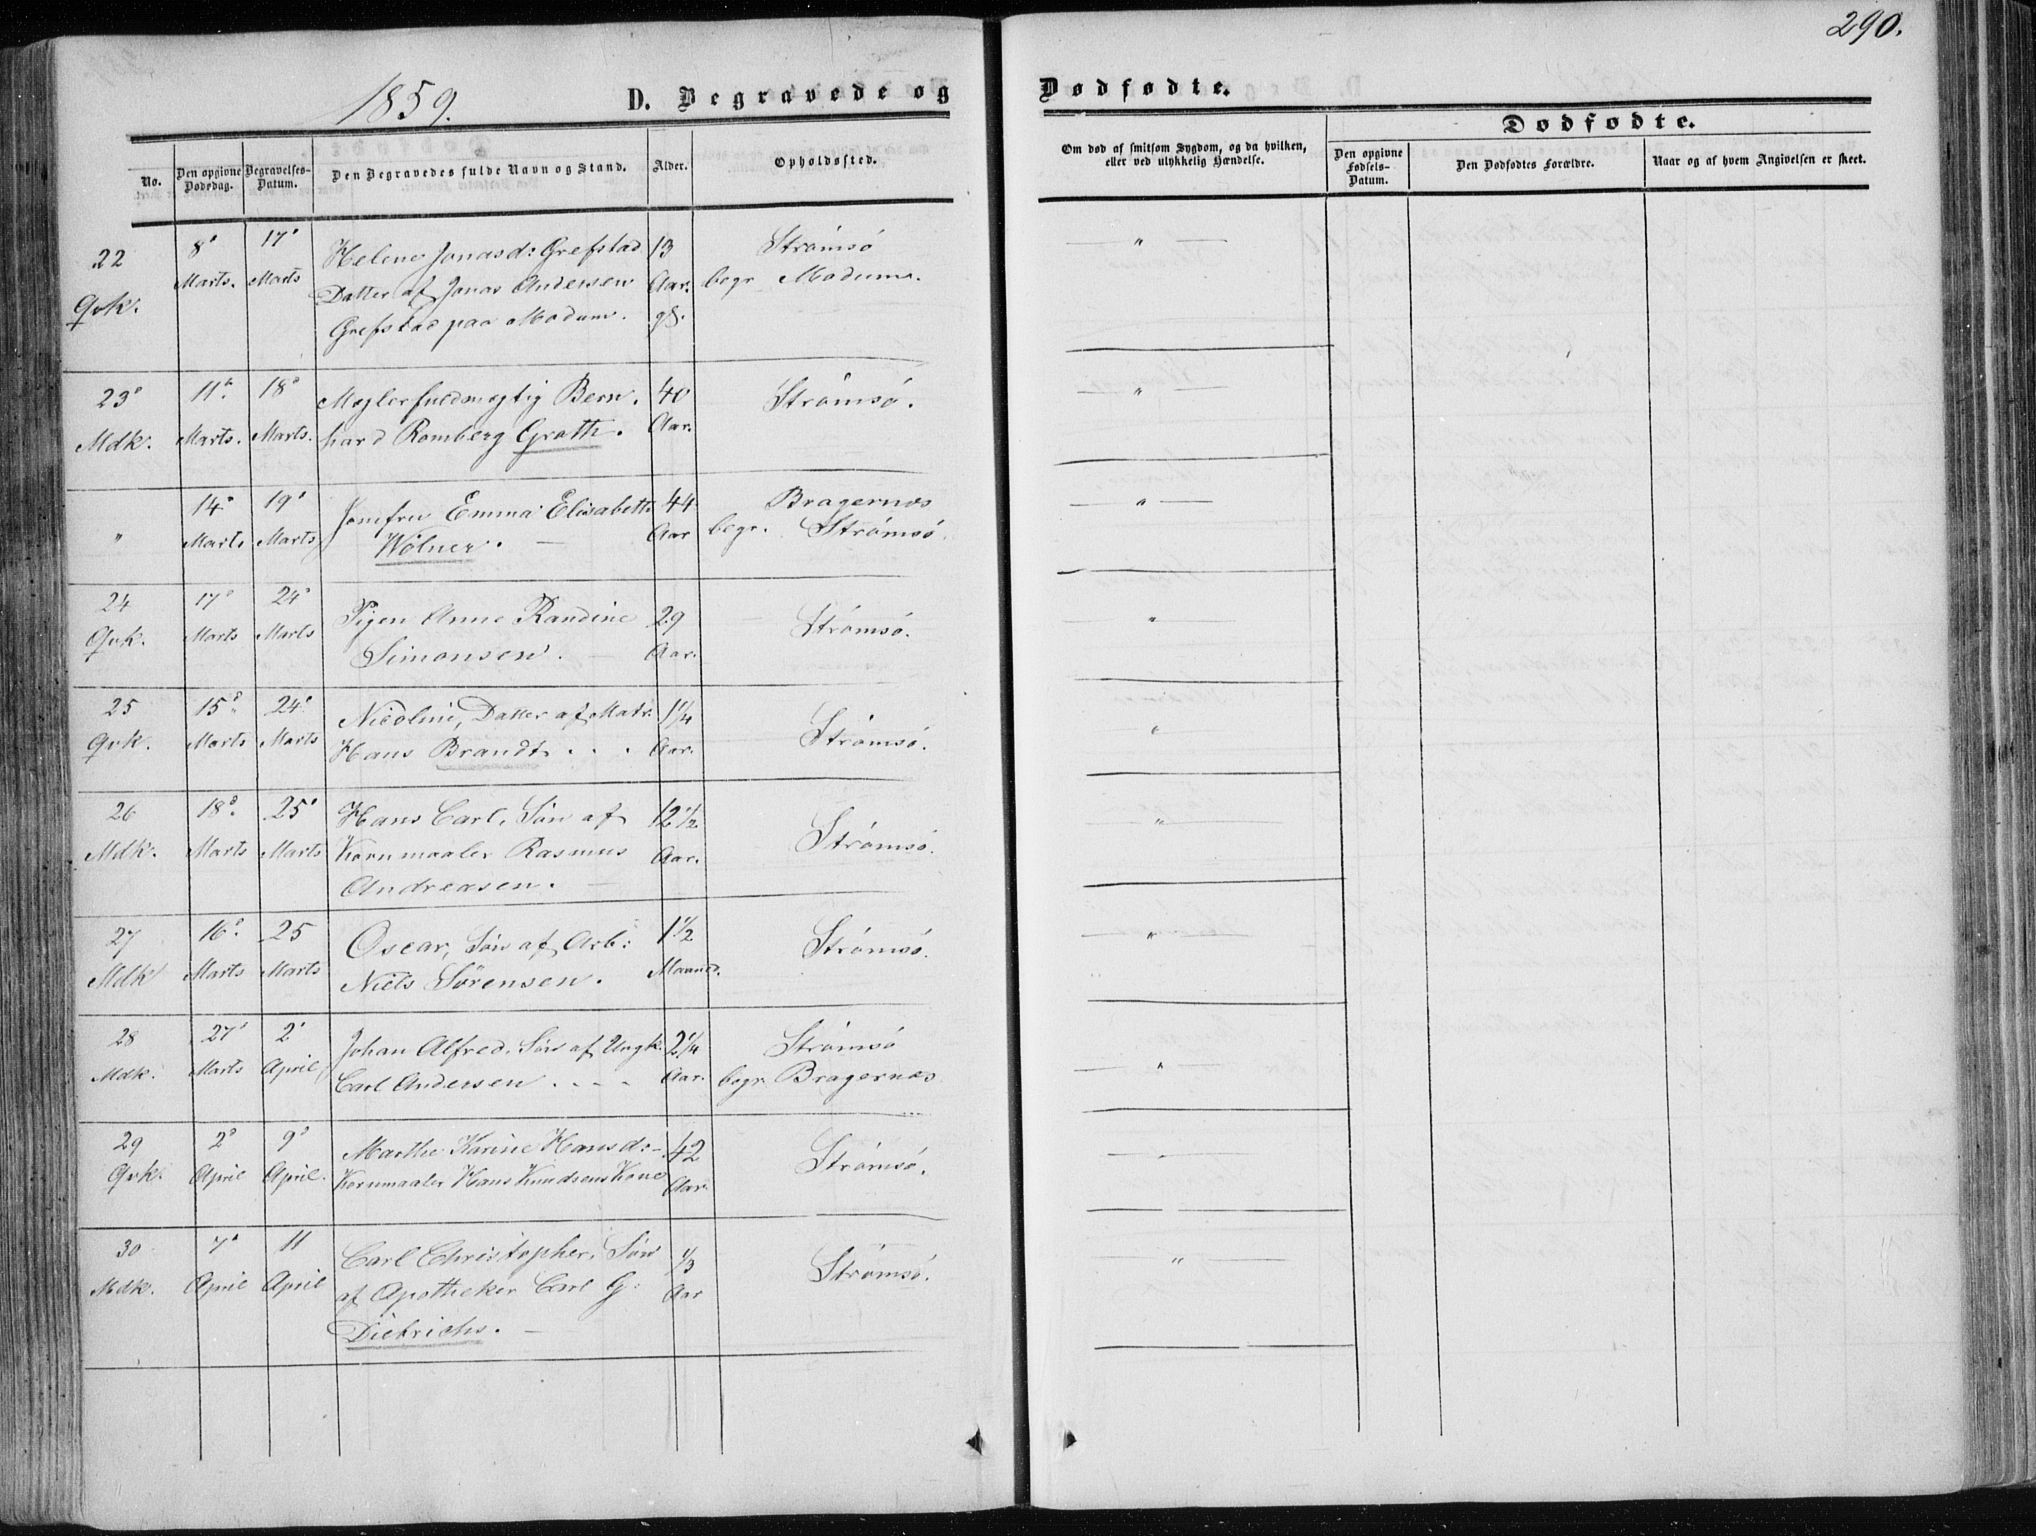 290.
1859.
D. Begravede og
Dødfødte.
Dødfødte.
No.
Den opgivne Dødsdag.
Begravelses-Datum.
Den Begravedes fulde Navn og Stand.
Alder.
Opholdssted.
Om død af smitsom Sygdom, og da hvilken, eller ved ulykkelig Hændelse.
Den opgivne Fødsels-Datum.
Den Dødfødtes Forældre.
Naar og af hvem Angivelsen er skeet.
22 8' 17' Helene Jonasd: Grefstad 13 Strømsø — " —
Qvk. Marts. Marts Datter af Jonas Andersen Aar. begr Modum.
Grefstad paa Modum. gl.
23' 11' 18' Mæglerfuldmægtig Bern- 40 Strømsø. — " —
Mdk. Marts. Marts. hard Romberg Groth. Aar.
" 14' 19' Jomfru Emma Elisabeth 44 Bragernæs — " —
Marts Marts Wölner. — Aar begr. Strømsø.
24 17' 24' Pigen Anne Randine 29 Strømsø. — " —
Qvk. Marts Marts Simonsen. — Aar.
25 15' 24' Nicoline, Datter af Matr. 1 1/4 Strømsø. — " —
Qvk. Marts Marts Hans Brandt. . . Aar.
26 18' 25' Hans Carl, Søn af 12 1/2 Strømsø. — " —
Mdk. Marts Marts Kornmaaler Rasmus Aar.
Andreasen. —
27 16' 25 Oscar, Søn af Arb: 1 1/2 Strømsø. — " —
Mdk Marts Marts Niels Sørensen. Maaned.
28 27' 2' Johan Alfred, Søn af Ungk. 2 1/4 Strømsø — " —
Mdk. Marts April Carl Andersen . . . . Aar. begr. Bragernæs
29 2' 9' Marthe Karine Hansd:- 42 Strømsø. — " —
Qvk. April April. Kornmaaler Hans Knudsens Kone Aar.
30 7' 11 Carl Christopher, Søn 1/3 Strømsø. — " —
Mdk. April April af Apotheker Carl G: Aar
Dietrichs. —